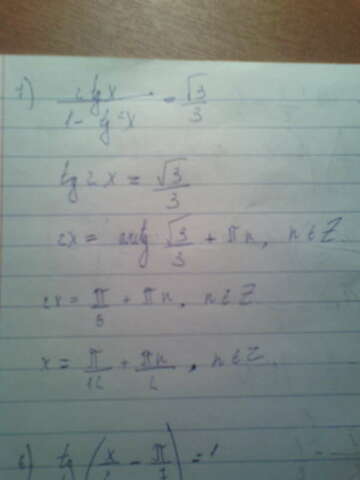 1) 2 tg x / 1 - tg²x = √3/3
tg 2x = √3/3
2x = arctg √3/3 + πn, n ∈ Z
2x = π/6 + πn, n ∈ Z
x = π/12 + πn/2, n ∈ Z
6) tg (x/ - π/ ) = 1